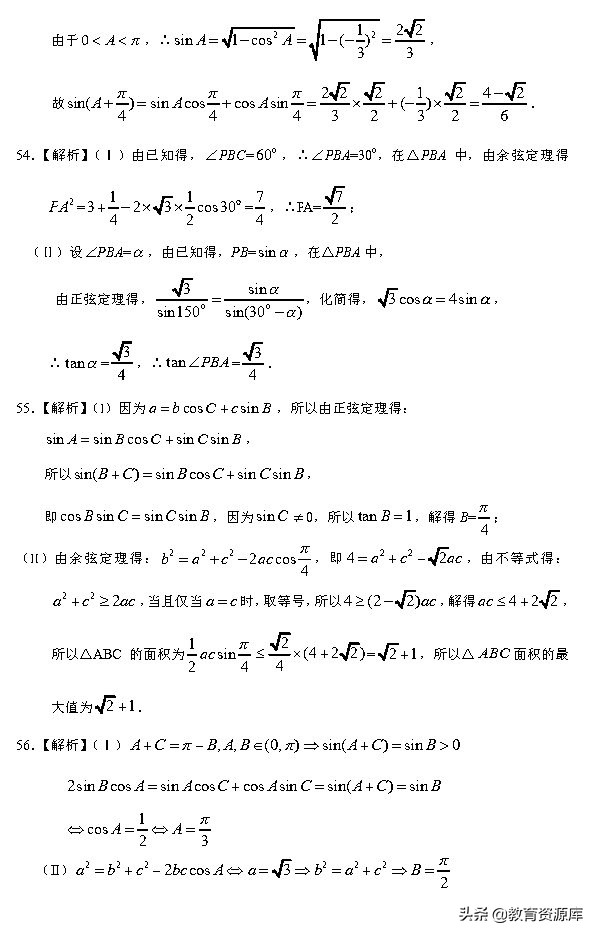 由于0 < A < π，∴ sin A = √(1−cos² A) = √(1−(−1/3)²) = 2√2/3，
故sin(A+π/4) = sin A cos π/4 + cos A sin π/4 = 2√2/3 × √2/2 + (−1/3) × √2/2 = (4−√2)/6．
54.【解析】(Ⅰ) 由已知得，∠PBC=60°，∴∠PBA=30°，在△PBA 中，由余弦定理得
PA² = 3 + 1/4 − 2×√3×1/2 cos30° = 7/4，∴PA=√7/2；
(Ⅱ) 设∠PBA=α，由已知得，PB=sin α，在△PBA中，
由正弦定理得，√3/sin150° = sin α/sin(30°−α)，化简得，√3 cos α = 4sin α，
∴ tan α = √3/4，∴ tan∠PBA = √3/4．
55.【解析】(Ⅰ) 因为a = b cos C + c sin B，所以由正弦定理得：
sin A = sin B cos C + sin C sin B，
所以sin(B + C) = sin B cos C + sin C sin B，
即 cos B sin C = sin C sin B，因为sin C ≠ 0，所以 tan B = 1，解得 B= π/4；
(Ⅱ) 由余弦定理得：b² = a² + c² − 2ac cos π/4，即 4 = a² + c² − √2ac，由不等式得：
a² + c² ≥ 2ac，当且仅当 a = c时，取等号，所以4 ≥ (2−√2)ac，解得ac ≤ 4+2√2，
所以△ABC 的面积为 1/2 ac sin π/4 ≤ √2/4 ×(4+2√2) = √2+1，所以△ ABC面积的最
大值为√2+1．
56.【解析】(Ⅰ) A+C = π−B, A, B∈(0, π) ⇒ sin(A+C) = sin B > 0
2sin B cos A = sin A cos C + cos A sin C = sin(A+C) = sin B
⇔ cos A = 1/2 ⇔ A = π/3
(Ⅱ) a² = b² + c² − 2bc cos A ⇔ a = √3 ⇒ b² = a² + c² ⇒ B = π/2
头条 @教育资源库